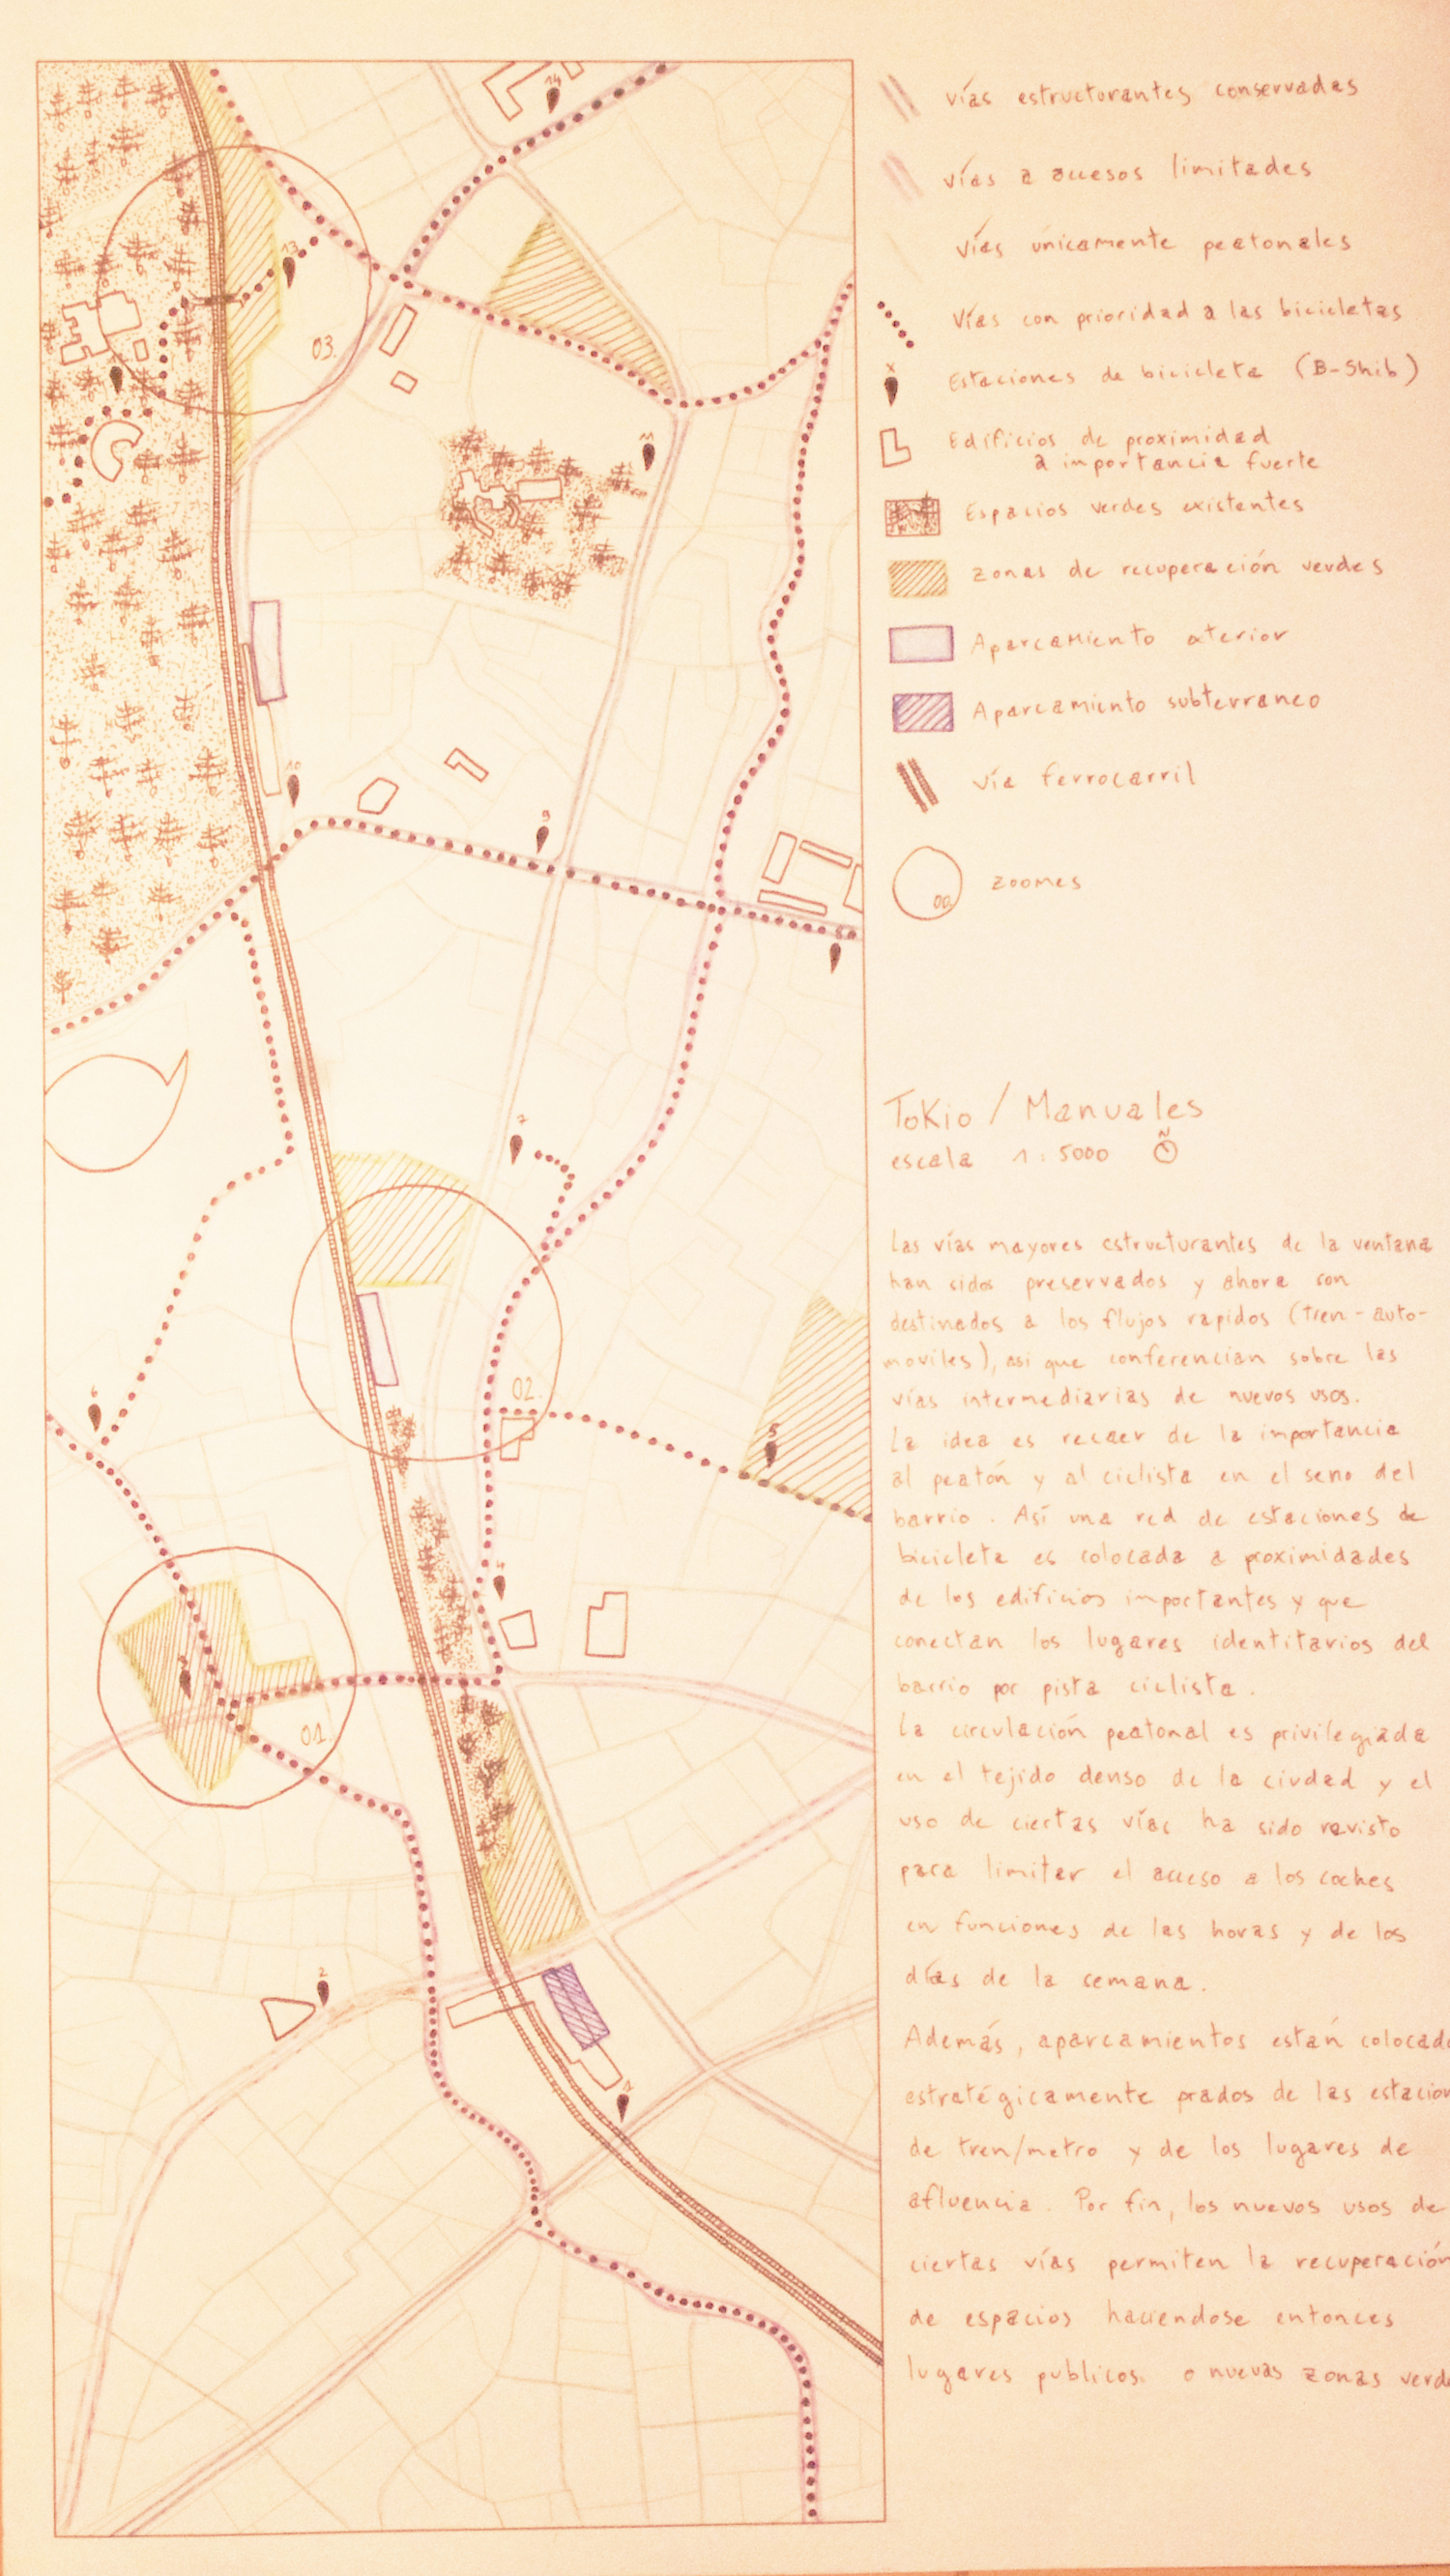 vías estructurantes conservadas
vías a accesos limitades
vías únicamente peatonales
Vías con prioridad a las bicicletas
x
Estaciones de bicicleta (B-Shib)
Edificios de proximidad
a importancia fuerte
Espacios verdes existentes
zonas de recuperación verdes
Aparcamiento exterior
Aparcamiento subterraneo
vía ferrocarril
00.
zoomes
14
13
03.
11
10
9
8
7
02.
6
5
4
3
01.
2
1
Tokio / Manuales
escala 1:5000 N
Las vías mayores estructurantes de la ventana
han sidos preservados y ahora son
destinados a los flujos rapidos (tren-auto-
moviles), asi que conferencian sobre las
vías intermediarias de nuevos usos.
La idea es recaer de la importancia
al peatón y al ciclista en el seno del
barrio. Así una red de estaciones de
bicicleta es colocada a proximidades
de los edificios importantes y que
conectan los lugares identitarios del
barrio por pista ciclista.
La circulación peatonal es privilegiada
en el tejido denso de la ciudad y el
uso de ciertas vías ha sido revisto
para limiter el acceso a los coches
en funciones de las horas y de los
días de la semana.
Además, aparcamientos estań colocado
estratégicamente prados de las estacion
de tren/metro y de los lugares de
afluencia. Por fin, los nuevos usos de
ciertas vías permiten la recuperación
de espacios haciendose entonces
lugares publicos. o nuevas zonas verde